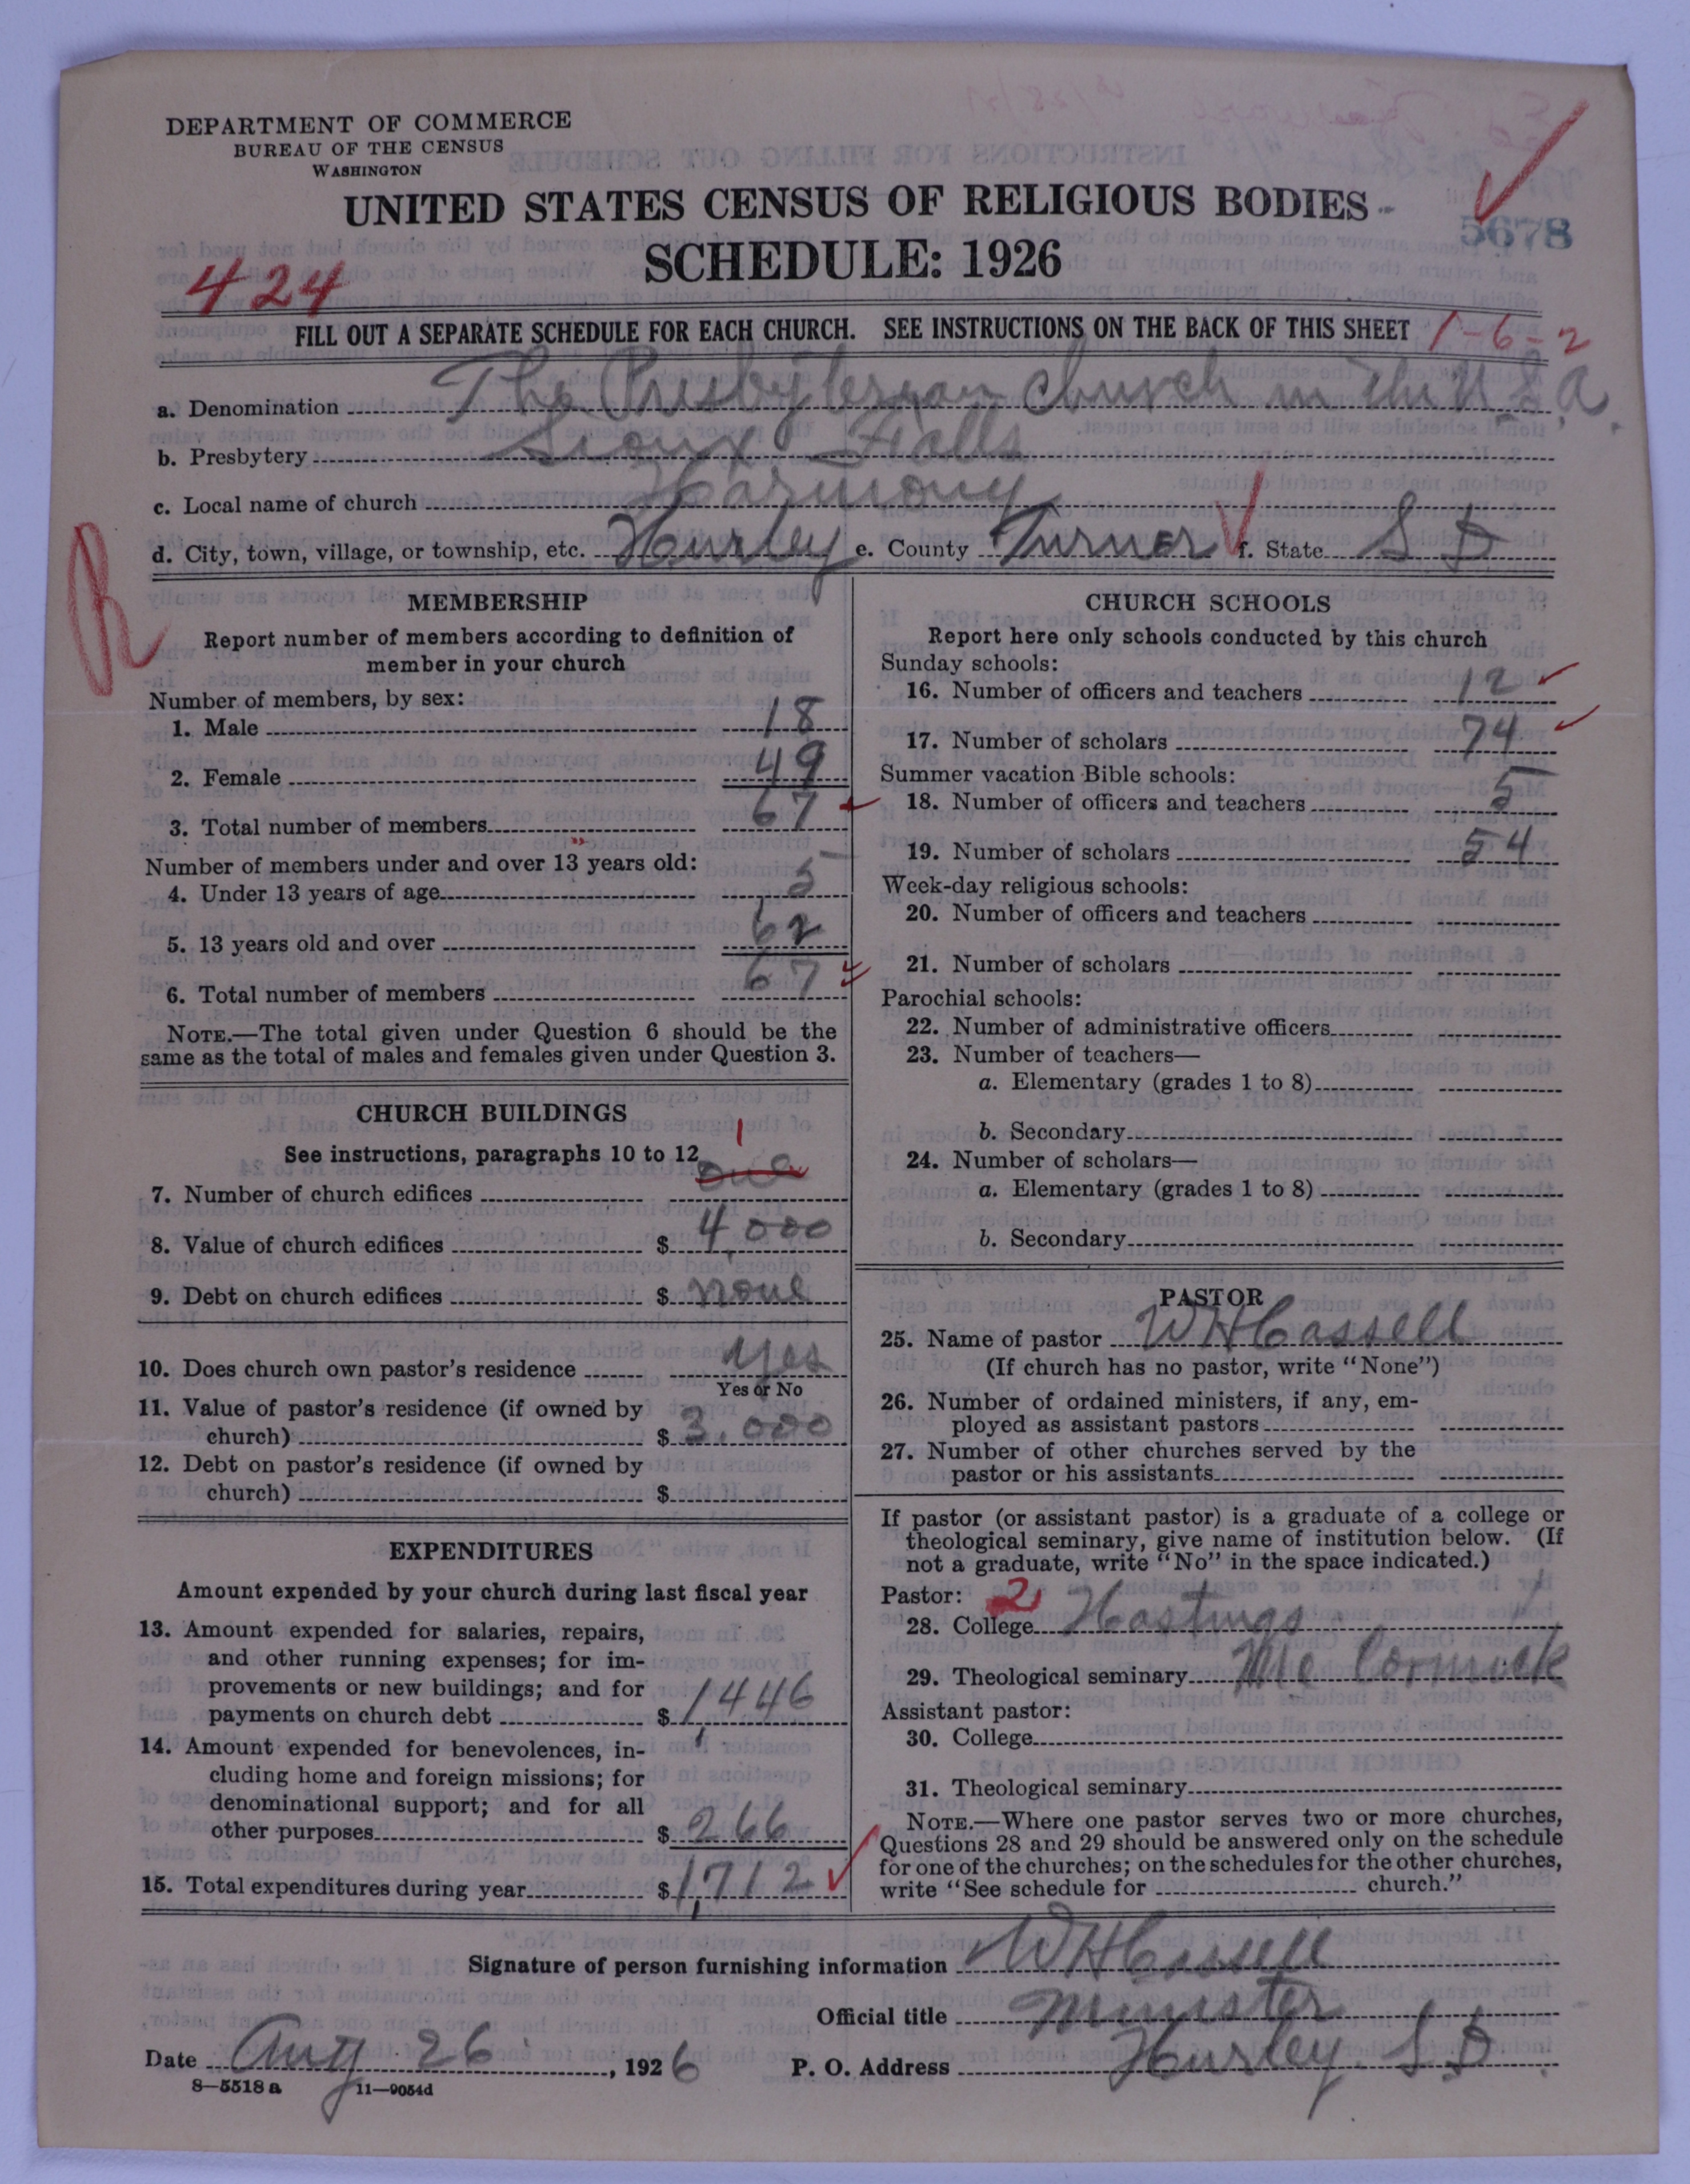 DEPARTMENT OF COMMERCE
BUREAU OF THE CENSUS
WASHINGTON
UNITED STATES CENSUS OF RELIGIOUS BODIES
5678
SCHEDULE: 1926
424
FILL OUT A SEPARATE SCHEDULE FOR EACH CHURCH. SEE INSTRUCTIONS ON THE BACK OF THIS SHEET 1-6-2
a. Denomination The Presbyterian church in the U.S.a.
b. Presbytery Sioux Falls
c. Local name of church Harmony
d. City, town, village, or township, etc. Hurley e. County Turner f. State S D
R
MEMBERSHIP
Report number of members according to definition of
member in your church
Number of members, by sex:
1. Male 18
2. Female 49
3. Total number of members 67
Number of members under and over 13 years old:
4. Under 13 years of age 5
5. 13 years old and over 62
6. Total number of members 67
NOTE.—The total given under Question 6 should be the
same as the total of males and females given under Question 3.
CHURCH BUILDINGS
See instructions, paragraphs 10 to 12
7. Number of church edifices one 1
8. Value of church edifices $ 4,000
9. Debt on church edifices $ none
10. Does church own pastor's residence yes
Yes or No
11. Value of pastor's residence (if owned by
church) $ 3,000
12. Debt on pastor's residence (if owned by
church) $
EXPENDITURES
Amount expended by your church during last fiscal year
13. Amount expended for salaries, repairs,
and other running expenses; for im-
provements or new buildings; and for
payments on church debt $ 1,446
14. Amount expended for benevolences, in-
cluding home and foreign missions; for
denominational support; and for all
other purposes $ 266
15. Total expenditures during year $ 1,712
CHURCH SCHOOLS
Report here only schools conducted by this church
Sunday schools:
16. Number of officers and teachers 12
17. Number of scholars 74
Summer vacation Bible schools:
18. Number of officers and teachers 5
19. Number of scholars 54
Week-day religious schools:
20. Number of officers and teachers
21. Number of scholars
Parochial schools:
22. Number of administrative officers
23. Number of teachers—
a. Elementary (grades 1 to 8)
b. Secondary
24. Number of scholars—
a. Elementary (grades 1 to 8)
b. Secondary
PASTOR
25. Name of pastor W H Cassell
(If church has no pastor, write "None")
26. Number of ordained ministers, if any, em-
ployed as assistant pastors
27. Number of other churches served by the
pastor or his assistants
If pastor (or assistant pastor) is a graduate of a college or
theological seminary, give name of institution below. (If
not a graduate, write "No" in the space indicated.)
Pastor: 2
28. College Hastings
29. Theological seminary Mc Cormick
Assistant pastor:
30. College
31. Theological seminary
NOTE.—Where one pastor serves two or more churches,
Questions 28 and 29 should be answered only on the schedule
for one of the churches; on the schedules for the other churches,
write "See schedule for church."
Signature of person furnishing information W H Cassell
Official title Minister
Date Aug 26, 1926 P. O. Address Hurley S D.
8—5518 a 11—9054d